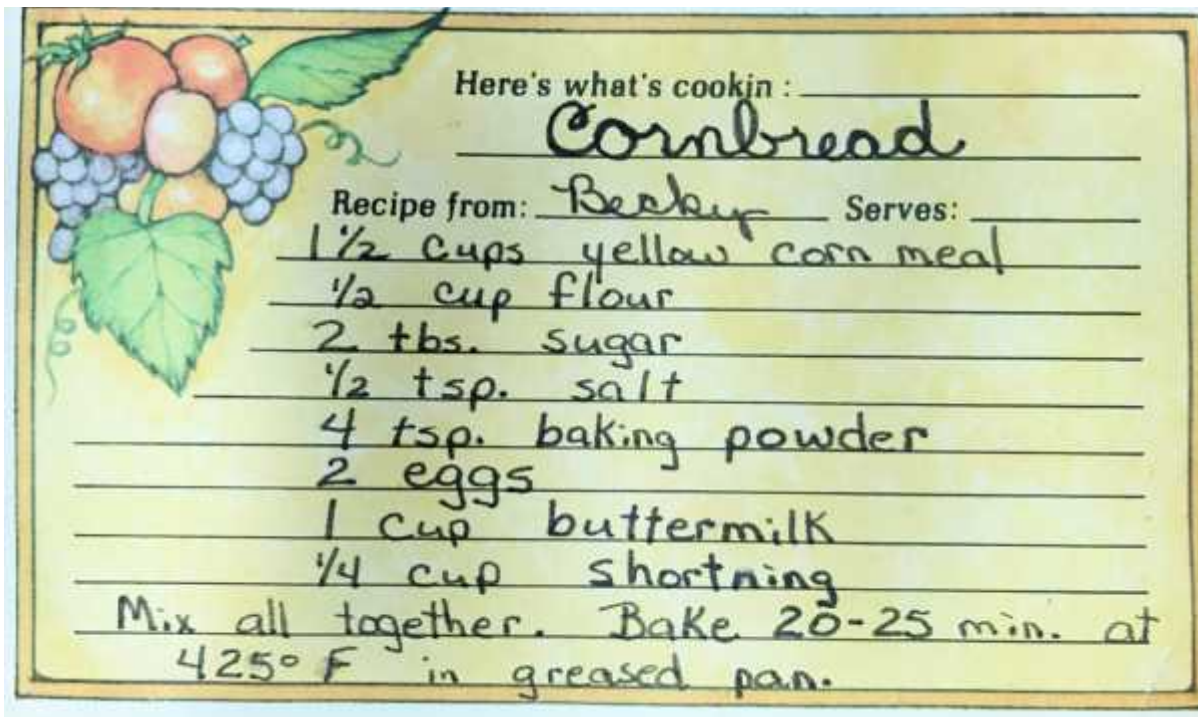 Here's what's cookin :
Cornbread
Recipe from: Becky Serves:
1 1/2 cups yellow corn meal
1/2 cup flour
2 tbs. sugar
1/2 tsp. salt
4 tsp. baking powder
2 eggs
1 cup buttermilk
1/4 cup shortning
Mix all together. Bake 20-25 min. at
425° F in greased pan.